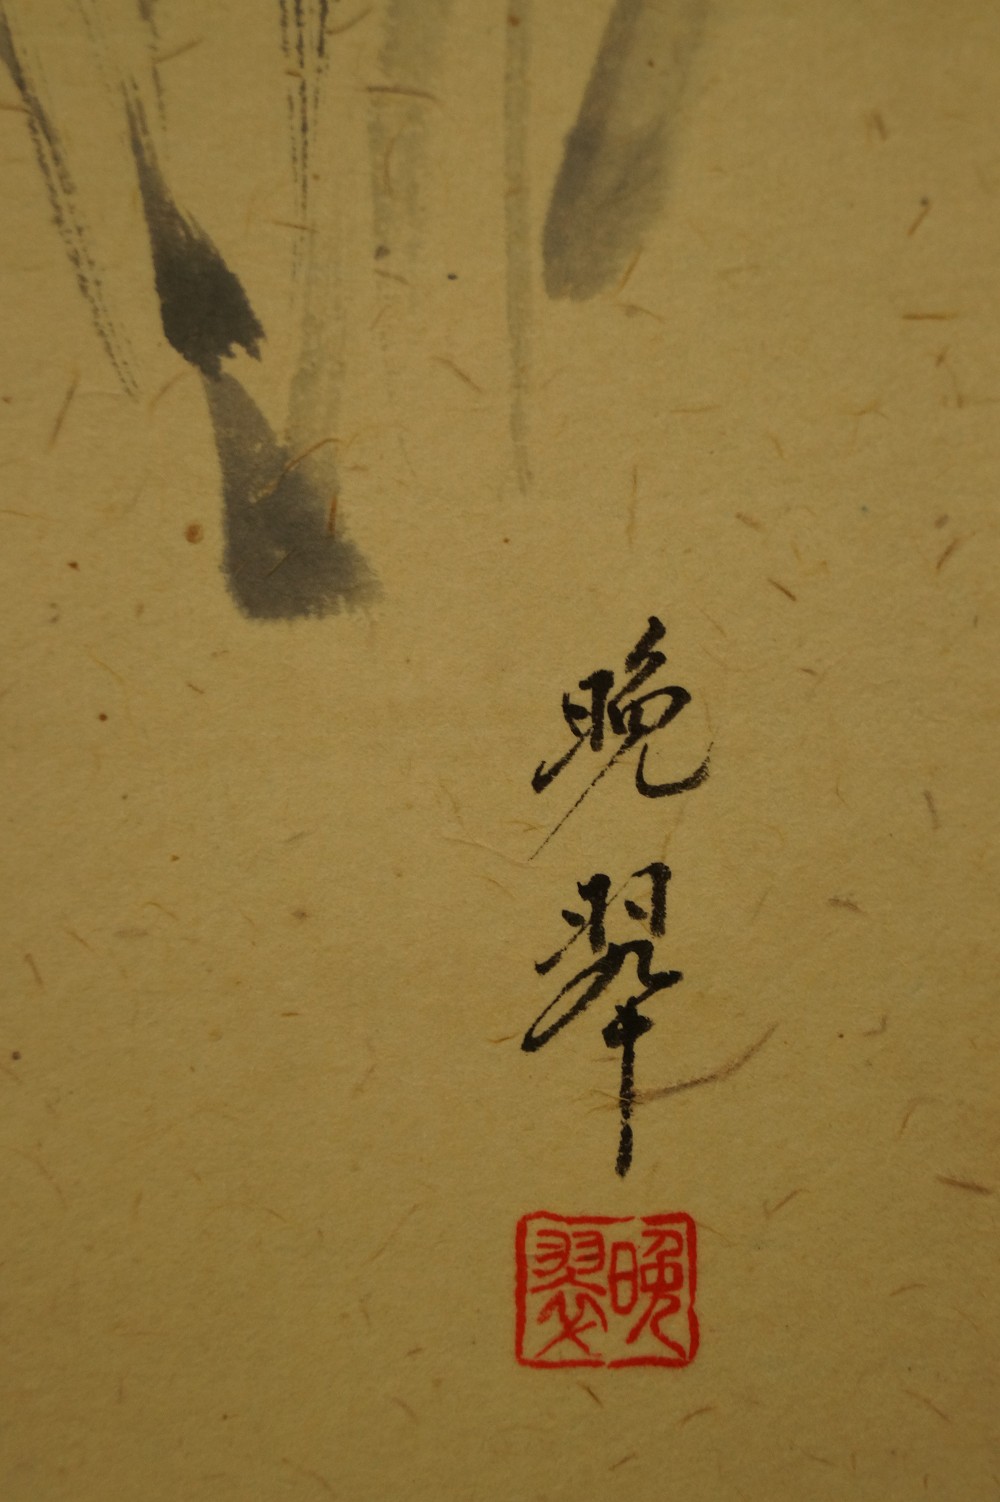 晩翠
晩翠